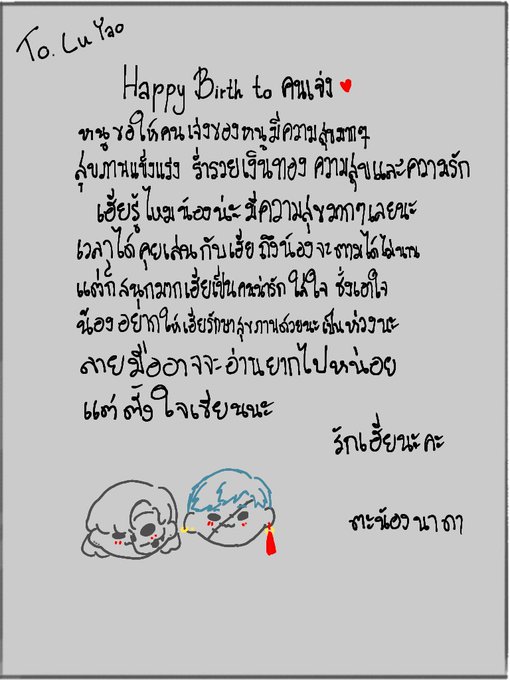 To. Lu Yao
Happy Birth to คนเจ่ง
หนูขอให้คนเจ่งของหนูมีความสุขมากๆ
สุขภาพแข็งแรง ร่ำรวยเงินทอง ความสุขและความรัก
เฮียรู้ไหมน้องน่ะมีความสุขมากๆเลยนะ
เวลาได้คุยเล่นกับเฮีย ถึงน้องจะตามได้ไม่นาน
แต่ก็สนุกมากเฮียเป็นคนน่ารัก ใส่ใจ ซึ่งเอาใจ
น้องอยากให้เฮียรักษาสุขภาพด้วยนะเป็นห่วงนะ
ลายมืออาจจะอ่านยากไปหน่อย
แต่ตั้งใจเขียนนะ
รักเฮียนะคะ
ตะน้องนาดา